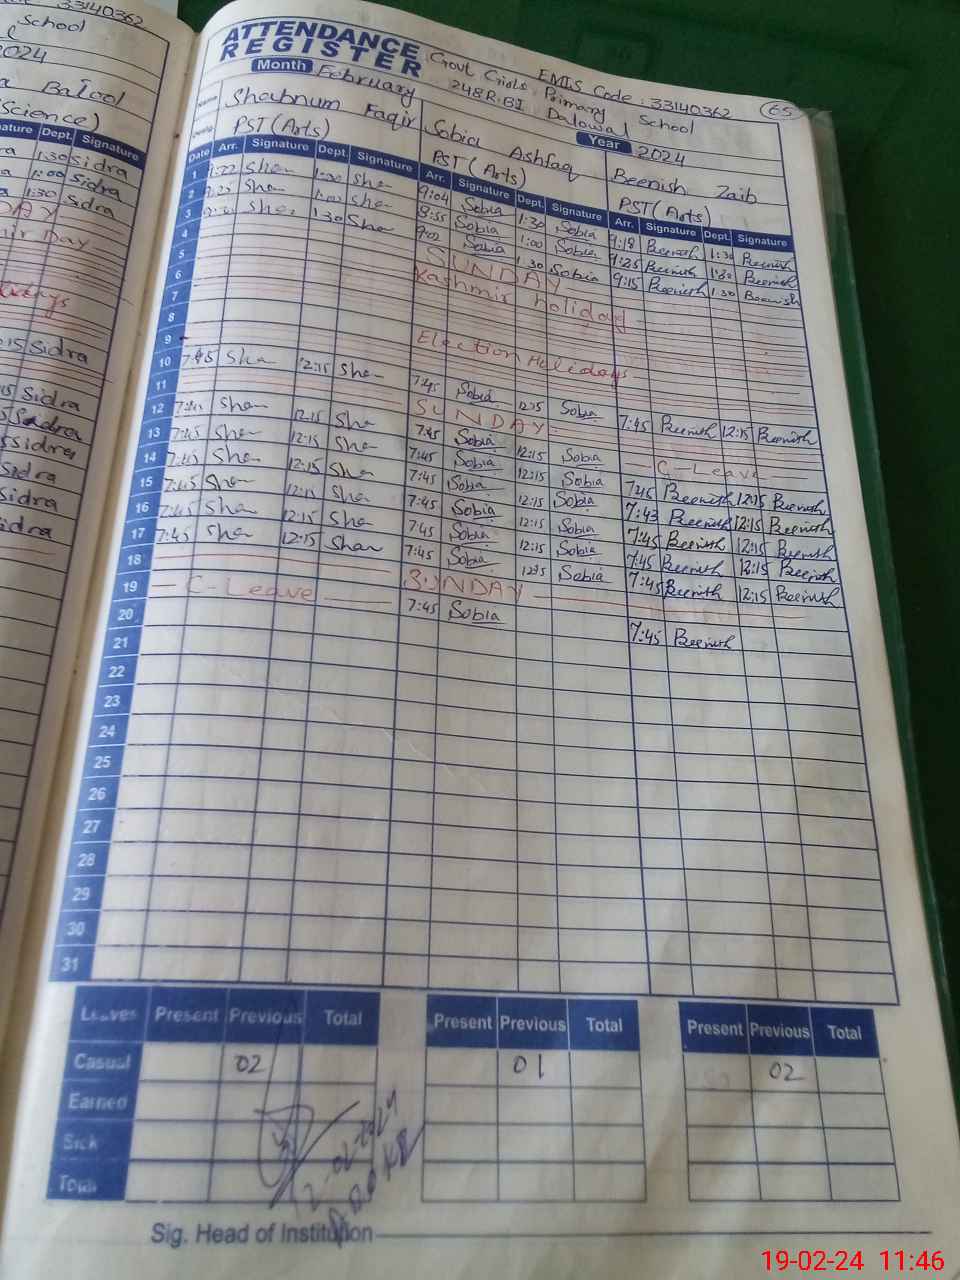 33140362
School
2024
Balool
(Science)
Signature Dept. Signature
1:30 Sidra
1:00 Sidra
1:30 Sidra
Sidra
Sidra
Sidra
Sidra
Sidra
Sidra
Sidra
ATTENDANCE REGISTER
EMIS Code : 33140362
65
Govt Girls Primary School
248 R.B I Dalowal
Month February
Year 2024
Shabnum Faqir Sobia Ashfaq Beenish Zaib
PST (Arts) PST (Arts) PST (Arts)
Date Arr. Signature Dept. Signature Arr. Signature Dept. Signature Arr. Signature Dept. Signature
1 Sha 1:30 Sha 9:04 Sobia 1:30 Sobia 9:18 Beenish 1:30 Beenish
2 Sha 1:00 Sha 8:55 Sobia 1:00 Sobia 9:25 Beenish Beenish
3 Sha 1:30 Sha 9:02 Sobia 1:30 Sobia 9:15 Beenish 1:30 Beenish
4 SUNDAY
5 Kashmir holiday
6
7
8 Election Holidays
9
10 7:45 Sha 12:15 Sha 7:45 Sobia 12:15 Sobia 7:45 Beenish 12:15 Beenish
11 SUNDAY
12 7:45 Sha 12:15 Sha 7:45 Sobia 12:15 Sobia C-Leave
13 7:45 Sha 12:15 Sha 7:45 Sobia 12:15 Sobia 7:45 Beenish 12:15 Beenish
14 7:45 Sha 12:15 Sha 7:45 Sobia 12:15 Sobia 7:43 Beenish 12:15 Beenish
15 7:45 Sha 12:15 Sha 7:45 Sobia 12:15 Sobia 7:45 Beenish 12:15 Beenish
16 7:45 Sha 12:15 Sha 7:45 Sobia 12:15 Sobia 7:45 Beenish 12:15 Beenish
17 7:45 Sha 12:15 Sha 7:45 Sobia Sobia 7:45 Beenish 12:15 Beenish
18 SUNDAY
19 C-Leave 7:45 Sobia 7:45 Beenish
20
21
22
23
24
25
26
27
28
29
30
31
Leaves Present Previous Total Present Previous Total Present Previous Total
Casual 02 01 02
Earned
Sick
Total
Sig. Head of Institution
19-02-24 11:46